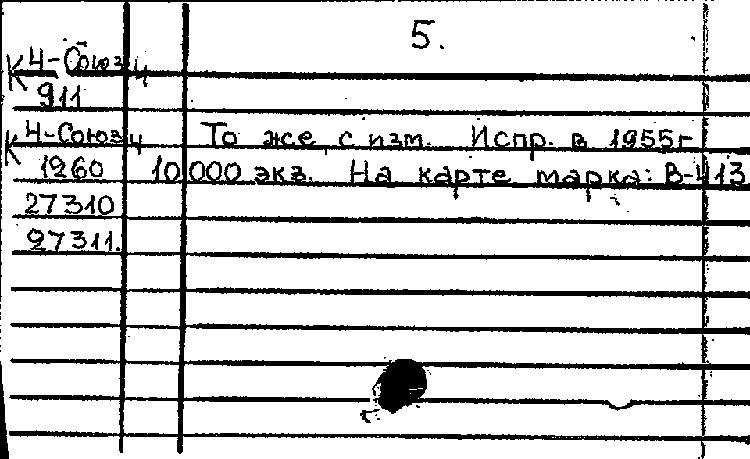 5.
К 4-Союз 4
911
К 4-Союз 4 То же, с изм. Испр. в 1955г
1260 10.000 экз. На карте марка: В-413
27310
27311.